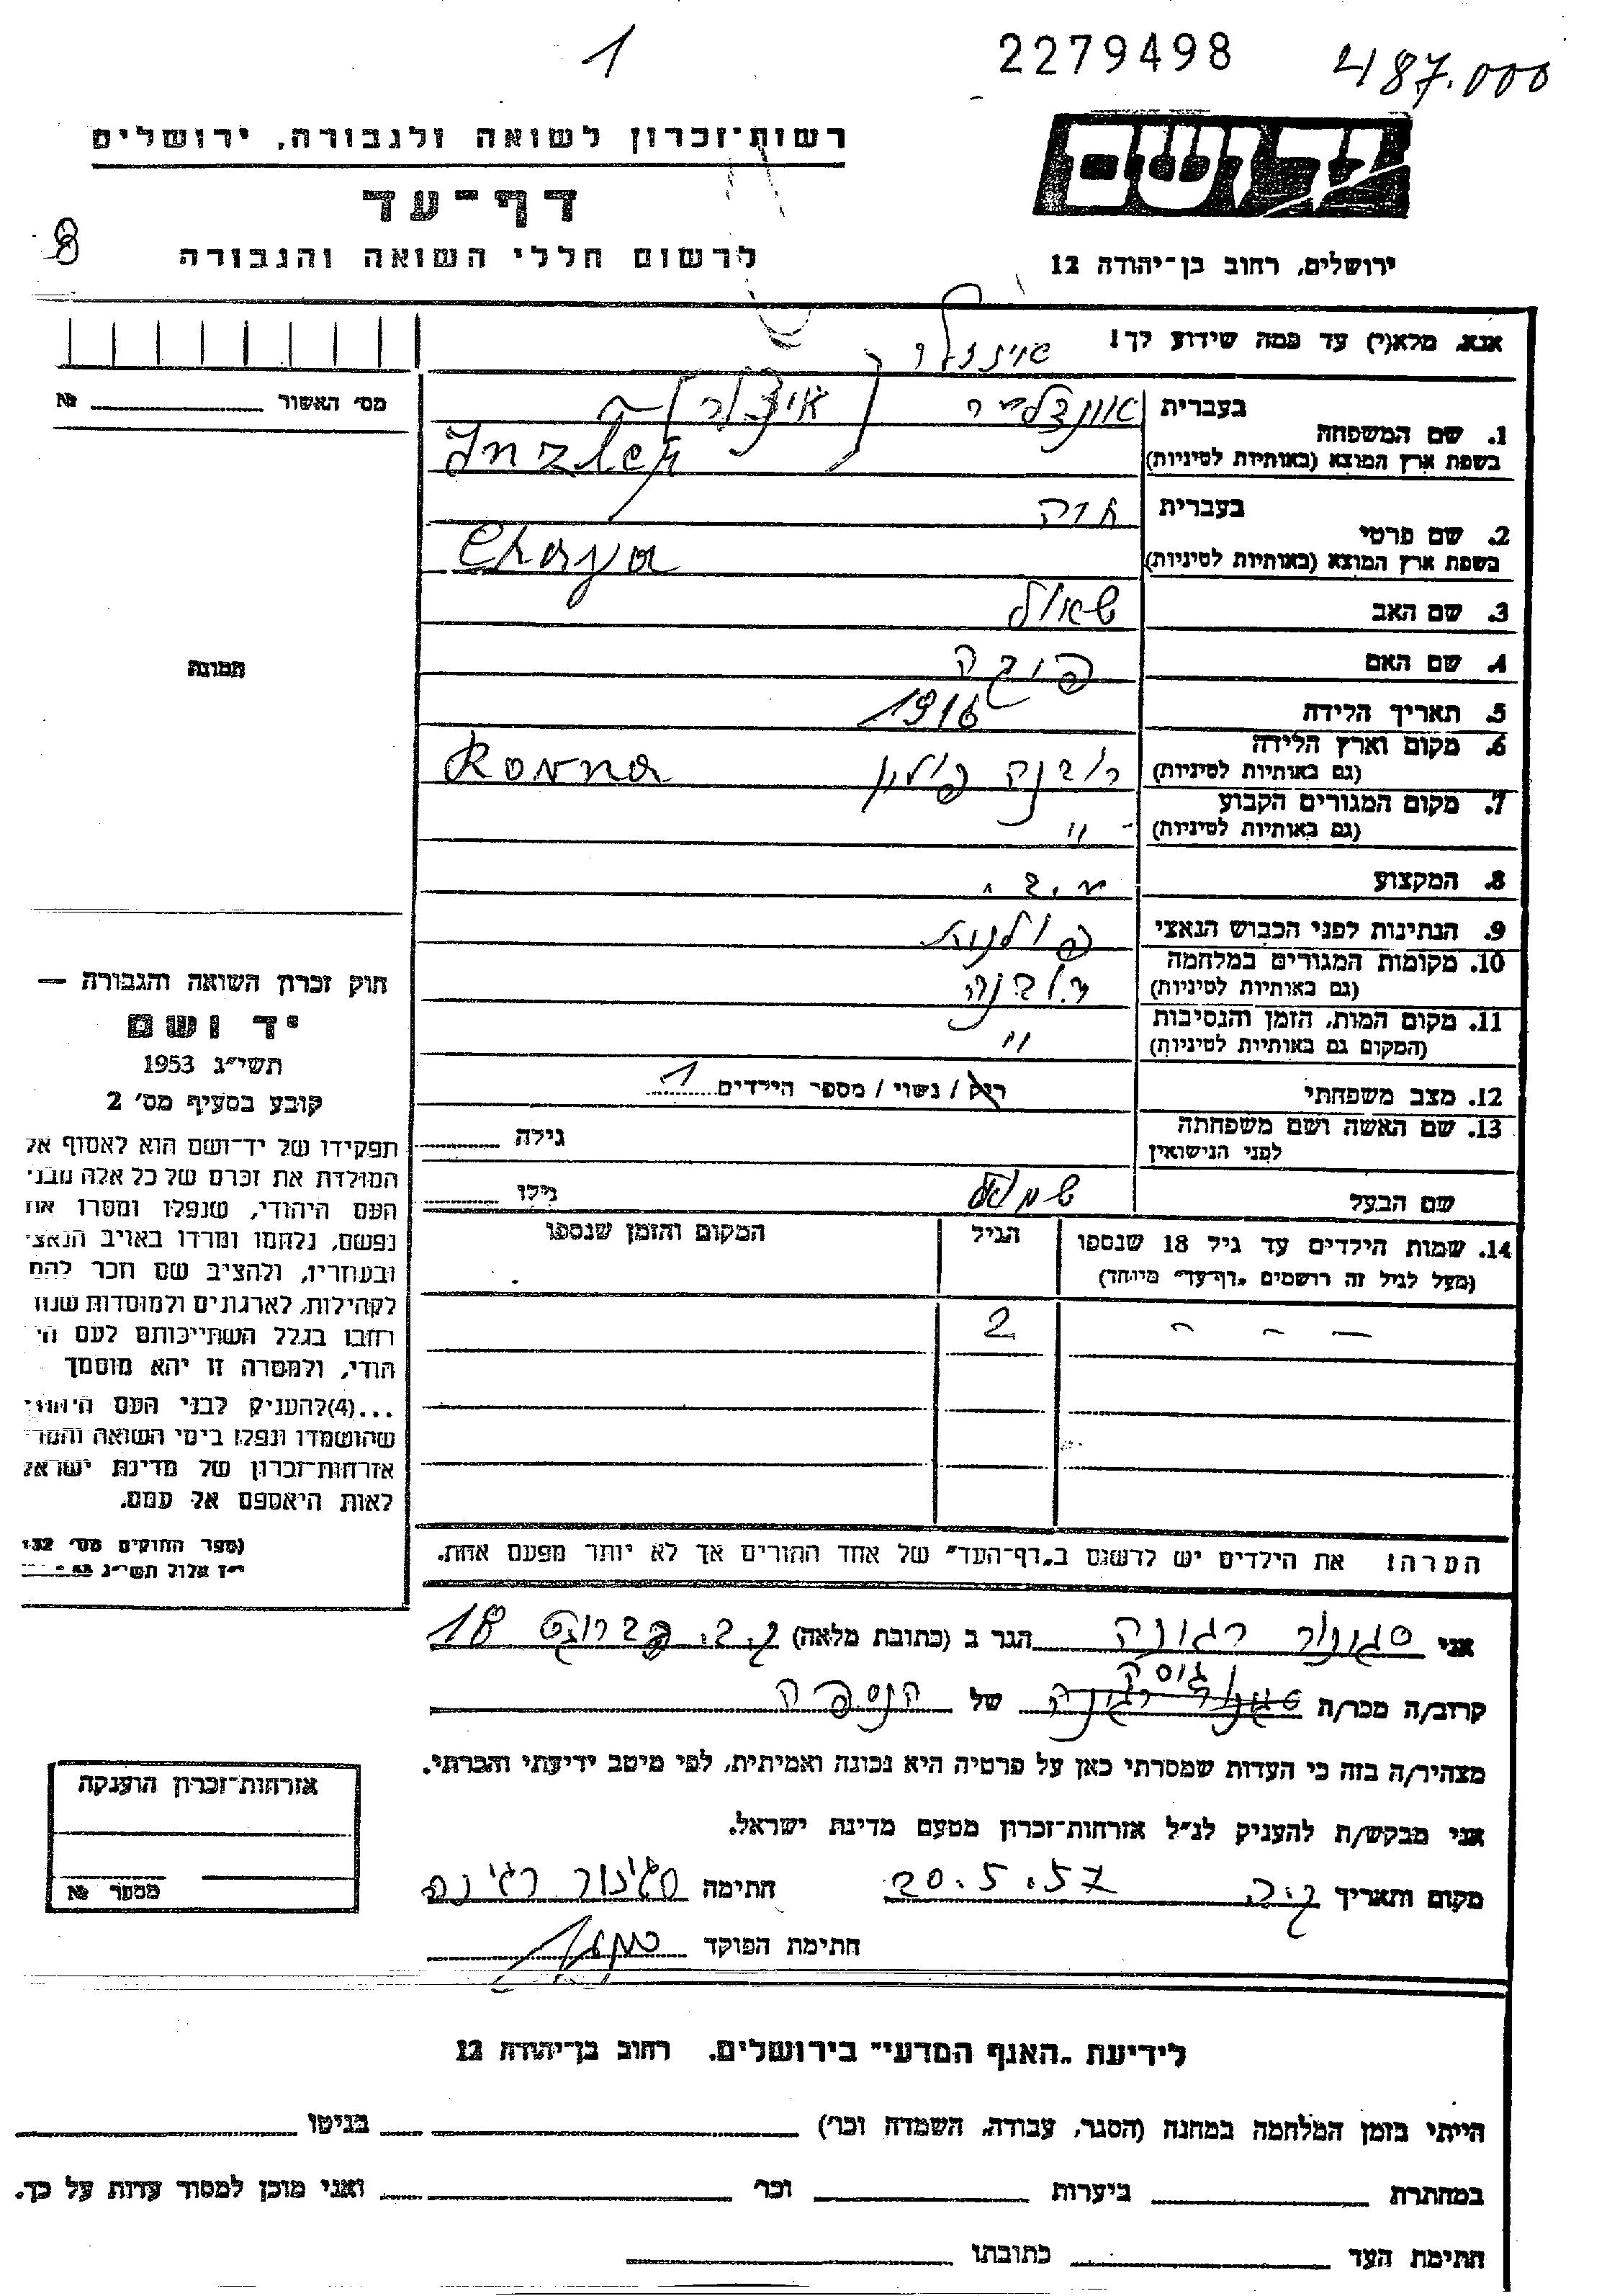 1
2279498
487.000
רשות־זכרון לשואה ולגבורה, ירושלים
דף־עד
לרשום חללי השואה והגבורה
8
יד ושם
ירושלים, רחוב בן־יהודה 12
אנא, מלא(י) עד כמה שידוע לך!
אינזלר
1. שם המשפחה
בעברית
אינצלר
בשפת ארץ המוצא (באותיות לטיניות)
Inzler
2. שם פרטי
בעברית
חיה
בשפת ארץ המוצא (באותיות לטיניות)
Chaya
3. שם האב שאול
4. שם האם פייגה
5. תאריך הלידה 1916
6. מקום וארץ הלידה
(גם באותיות לטיניות)
רובנה פולין Rovna
7. מקום המגורים הקבוע
(גם באותיות לטיניות)
"
8. המקצוע
9. הנתינות לפני הכבוש הנאצי פולנית
10. מקומות המגורים במלחמה
(גם באותיות לטיניות)
רובנה
11. מקום המות, הזמן והנסיבות
(המקום גם באותיות לטיניות)
"
12. מצב משפחתי רוק / נשוי / מספר הילדים 1
13. שם האשה ושם משפחתה
לפני הנישואין
גילה
שם הבעל שמואל גילו
14. שמות הילדים עד גיל 18 שנספו
(מעל לגיל זה רושמים „דף־עד" מיוחד)
הגיל
המקום והזמן שנספו
- - - 2
הערה! את הילדים יש לרשום ב„דף־העד" של אחד ההורים אך לא יותר מפעם אחת.
אני סגינור רגינה הגר ב (כתובת מלאה) 18
קרוב/ה מכר/ה גיסה של הנספה
מצהיר/ה בזה כי העדות שמסרתי כאן על פרטיה היא נכונה ואמיתית, לפי מיטב ידיעתי והכרתי.
אני מבקש/ת להעניק לנ"ל אזרחות־זכרון מטעם מדינת ישראל.
מקום ותאריך 20.5.57 חתימה סגינור רגינה
חתימת הפוקד
מס' האשור №
תמונה
חוק זכרון השואה והגבורה —
יד ושם
תשי"ג 1953
קובע בסעיף מס' 2
תפקידו של יד־ושם הוא לאסוף אל
המולדת את זכרם של כל אלה מבני
העם היהודי, שנפלו ומסרו את
נפשם, נלחמו ומרדו באויב הנאצי
ובעוזריו, ולהציב שם וזכר להם
לקהילות, לארגונים ולמוסדות שנח
רחבו בגלל השתייכותם לעם הי
הודי, ולמטרה זו יהא מוסמך
...(4)להעניק לבני העם היהודי
שהושמדו ונפלו בימי השואה והמרי
אזרחות־זכרון של מדינת ישראל
לאות היאספם אל עמם.
(ספר החוקים מס' 132
י"ז אלול תשי"ג
אזרחות־זכרון הוענקה
מספר №
לידיעת „האגף המדעי" בירושלים, רחוב בן־יהודה 12
הייתי בזמן המלחמה במחנה (הסגר, עבודה, השמדה וכו') בגיטו
במחתרת ביערות וכו' ואני מוכן למסור עדות על כך.
חתימת העד כתובתו